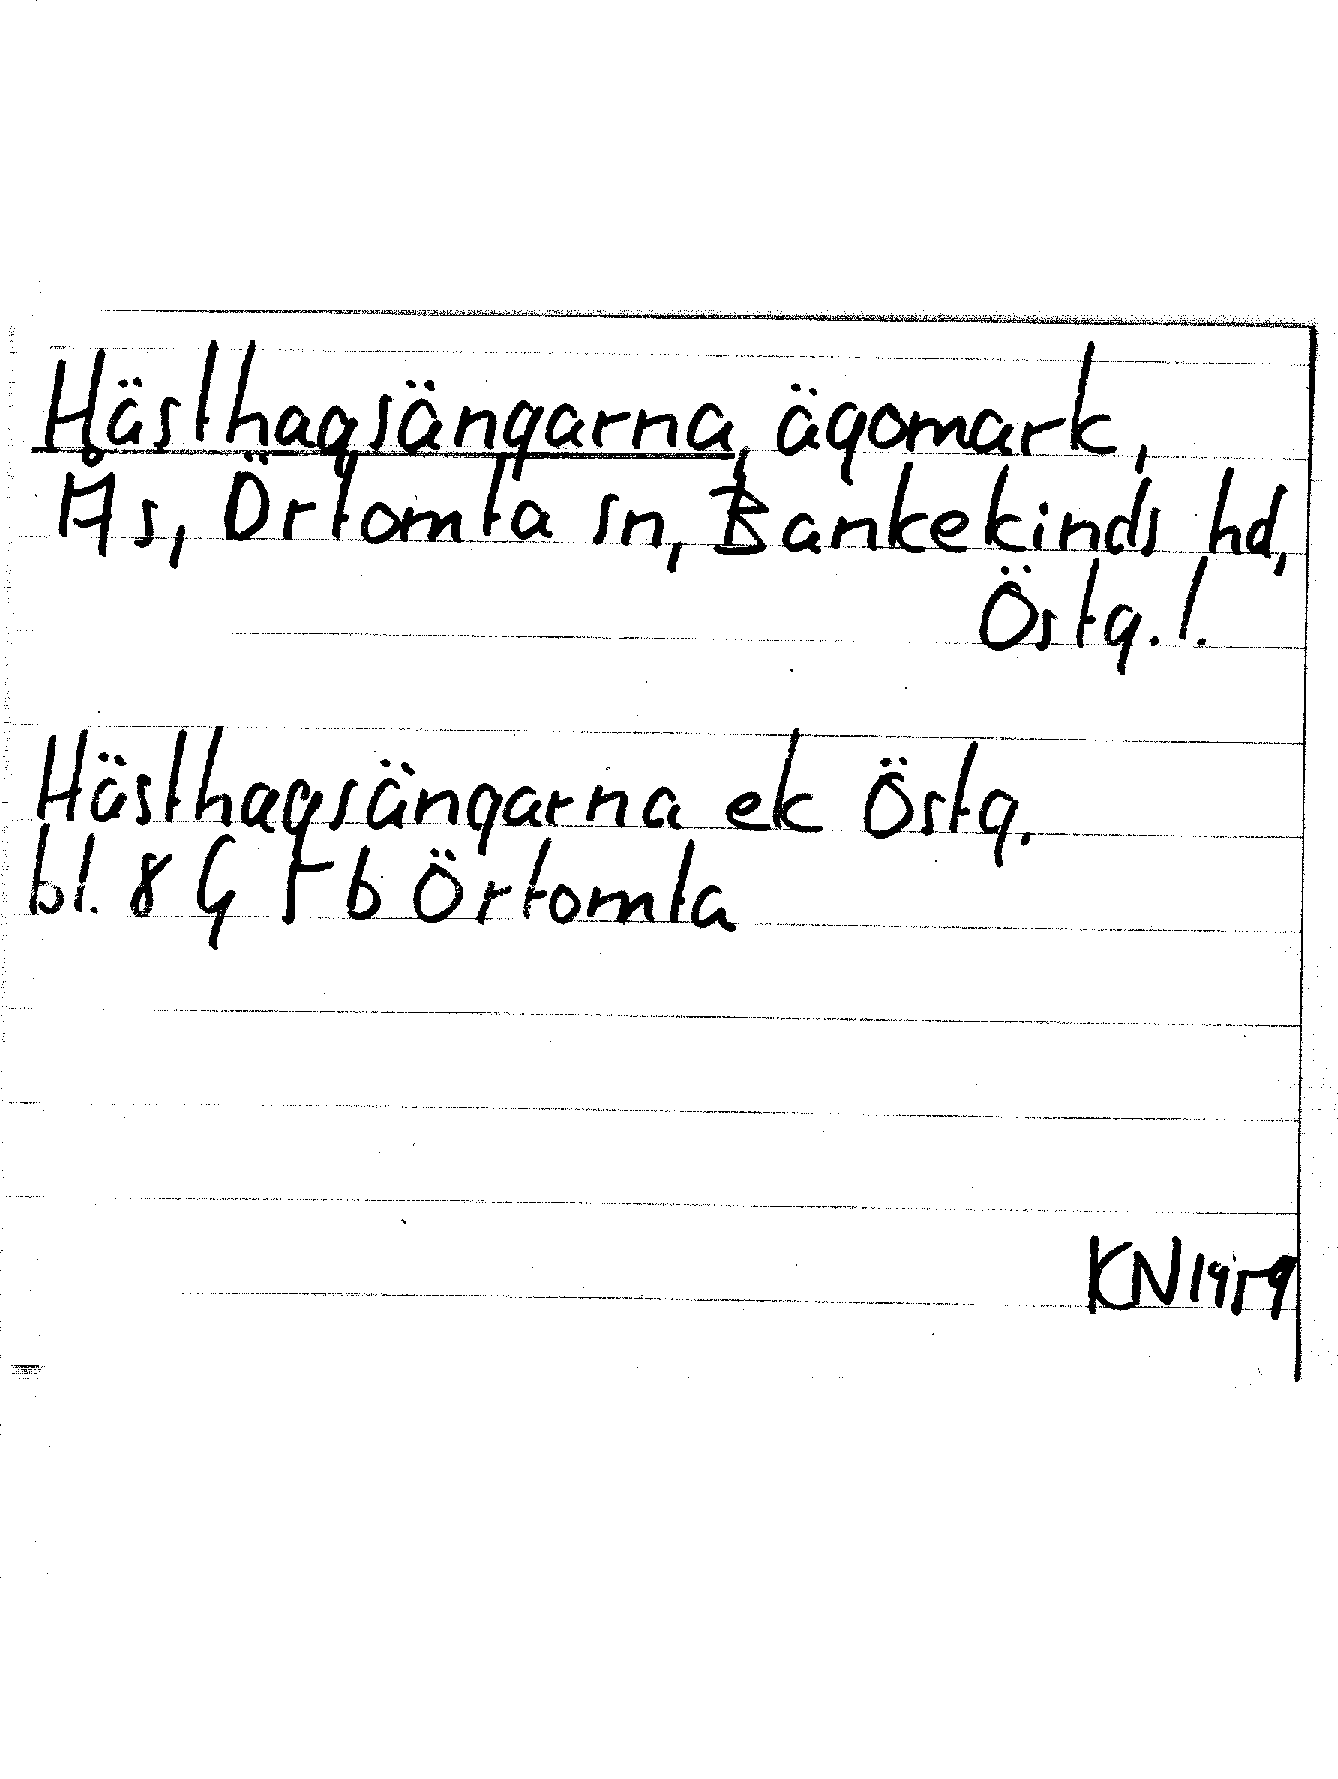 Hästhagsängarna, ägomark,
Ås, Örtomta sn, Bankekinds hd,
Östg. l.
Hästhagsängarna ek Östg.
bl. 8 G 5 b Örtomta
KN 1959